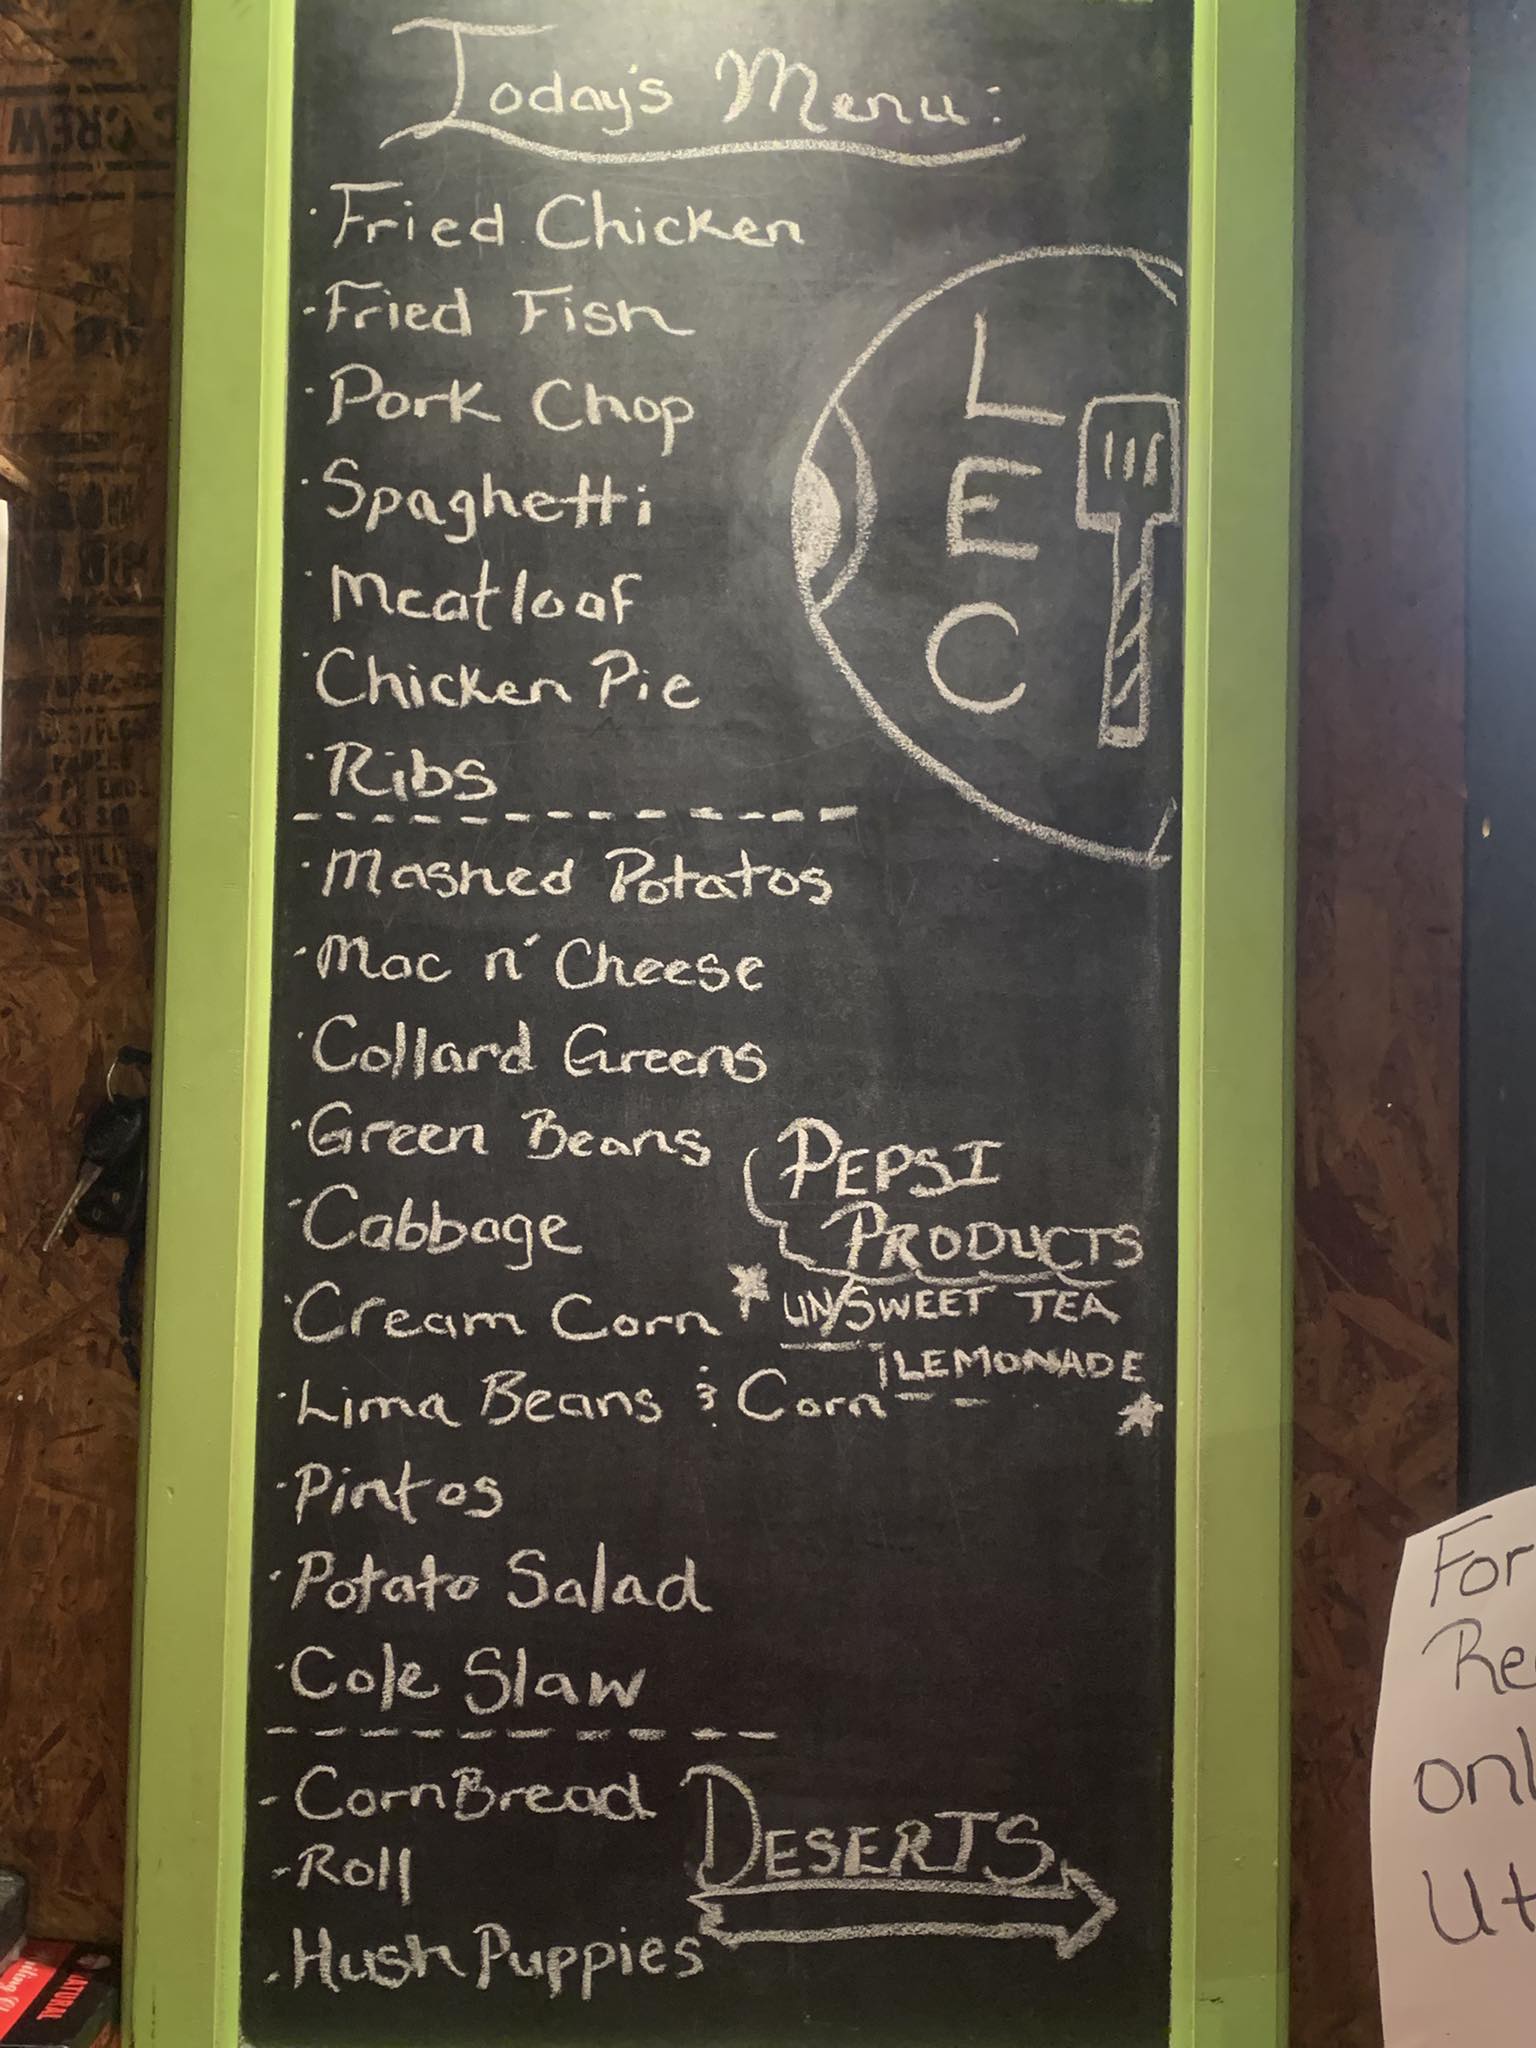 Today's Menu:
· Fried Chicken
· Fried Fish
· Pork Chop
· Spaghetti
· Meatloaf
· Chicken Pie
· Ribs
L
E
C
· Mashed Potatos
· Mac n' Cheese
· Collard Greens
· Green Beans
· Cabbage
· Cream Corn
· Lima Beans & Corn
· Pintos
· Potato Salad
· Cole Slaw
PEPSI
PRODUCTS
UN/SWEET TEA
LEMONADE
- CornBread
- Roll
. Hush Puppies
DESERTS
For
Re
onl
Ut
CREW